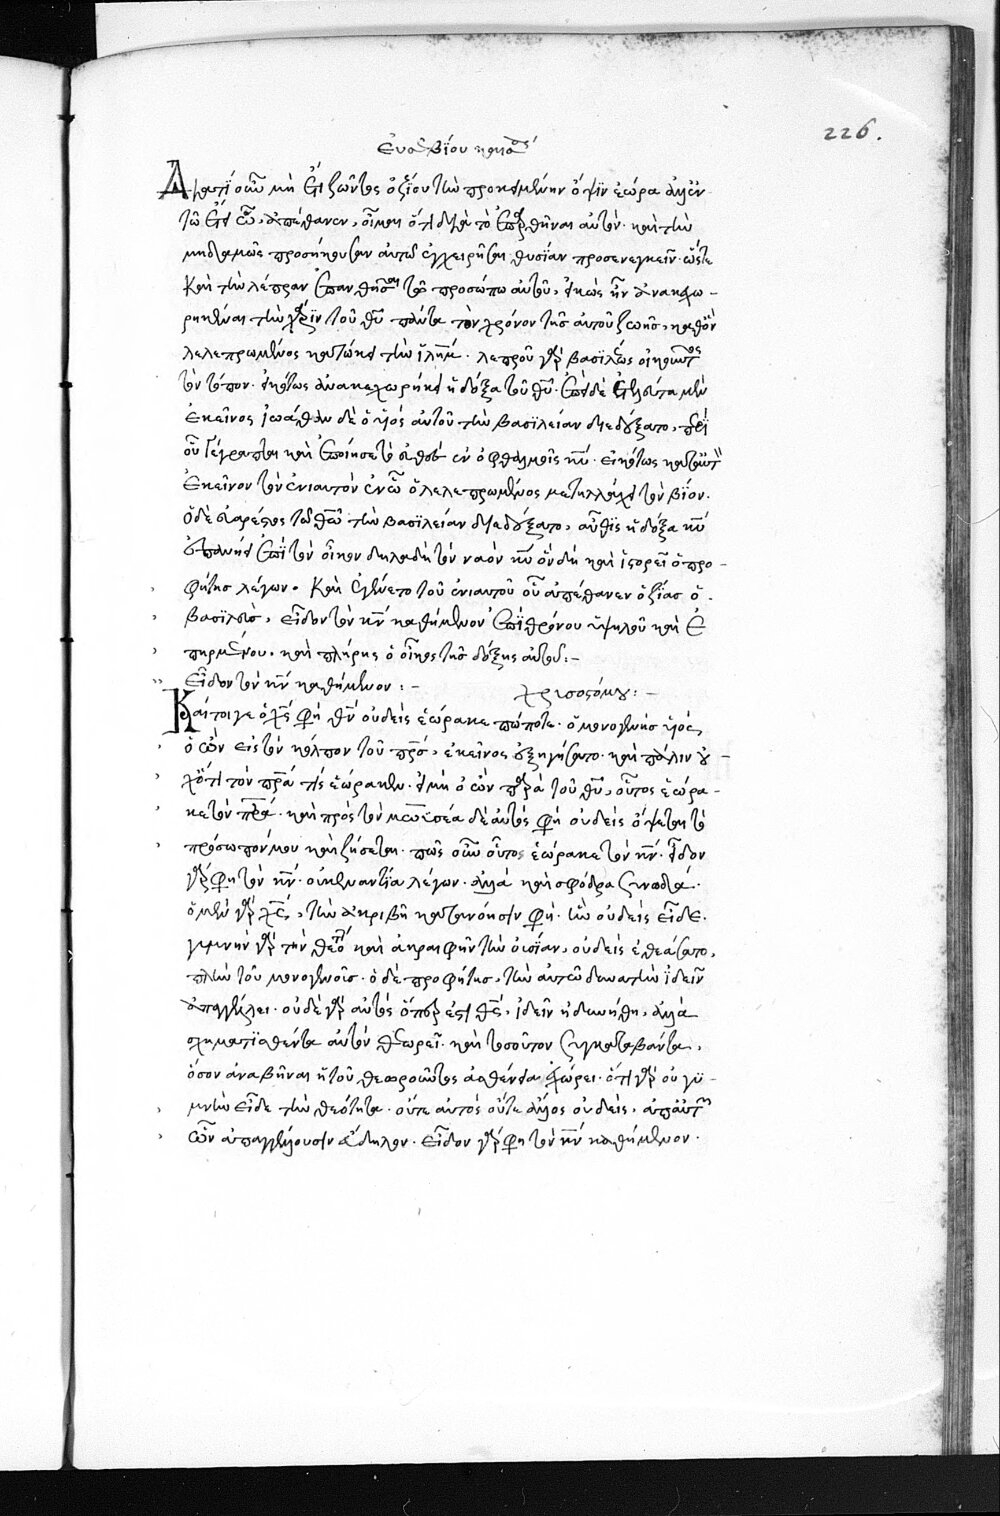 226.
Εὐσεβίου καισαρείας
Διατί οὖν μὴ ἔτι ζῶντος ὀζίου τὴν προκειμένην ὄψιν ἑώρα ἀλλ' ἐν
τῶ ἔτει ὧ, ἀπέθανεν, οἶμαι ὅτι διὰ τὸ ἐπαρθῆναι αὐτόν· καὶ τὴν
μηδαμῶς προσήκουσαν αὐτῶ ἐγχειρῆσαι θυσίαν προσενεγκεῖν· ὥστε
καὶ τὴν λέπραν ἐπανθῆσαι τῶ προσώπω αὐτοῦ, εἰκὸς ἦν ἀνακεχω-
ρηκέναι τὴν χάριν τοῦ θυ πάντα τὸν χρόνον τῆς αὐτοῦ ζωῆς, καθ' ὃν
λελεπρωμένος κατώκει τὴν ιλημ· λεπροῦ γὰρ βασιλέως οἰκοῦντος
τὸν τόπον· εἰκότως ἀνακεχωρήκει ἡ δόξα τοῦ θυ· ἐπεὶ δὲ ἐτελεύτα μὲν
ἐκεῖνος ἰωάθαν δὲ ὁ υἱὸς αὐτοῦ τὴν βασιλείαν διεδέξατο, περὶ
οὗ γέγραπται καὶ ἐποίησε τὸ εὐθὲς ἐν ὀφθαλμοῖς κυ· εἰκότως κατ' αὐτὸν
ἐκεῖνον τὸν ἐνιαυτὸν ἐν ὧ ὁ λελεπρωμένος μετήλλαχε τὸν βίον·
ὁ δὲ εὐαρέστος τῶ θω τὴν βασιλείαν διεδέξατο, αὖθις ἡ δόξα κυ
ἐπανήει ἐπὶ τὸν οἶκον δηλαδὴ τὸν ναὸν κυ ὃν δὴ καὶ ἱστορεῖ ὁ προ-
φήτης λέγων· Καὶ ἐγένετο τοῦ ἐνιαυτοῦ οὗ ἀπέθανεν ὀζίας ὁ
βασιλεὺς, εἶδον τὸν κν καθήμενον ἐπὶ θρόνου ὑψηλοῦ καὶ ἐ
πηρμένου· καὶ πλήρης ὁ οἶκος τῆς δόξης αὐτοῦ:-
Εἶδον τὸν κν καθήμενον:- χρισοστόμου:-
Καίτοιγε ὁ χς φη θν οὐδεὶς ἑώρακε πώποτε· ὁ μονογενὴς υἱὸς,
ὁ ὢν εἰς τὸν κόλπον τοῦ πρς, ἐκεῖνος ἐξηγήσατο· καὶ πάλιν οὐ-
χ' ὅτι τὸν πρα τὶς ἑώρακεν· εἰ μὴ ὁ ὢν παρὰ τοῦ θυ, οὗτος ἑώρα-
κε τὸν πρα· καὶ πρὸς τὸν μωϋσέα δὲ αὐτὸς φη οὐδεὶς ὄψεται τὸ
πρόσωπόν μου καὶ ζήσεται· πῶς οὖν οὗτος ἑώρακε τὸν κν· εἶδον
γάρ φη τὸν κν· οὐκ ἐναντία λέγων· ἀλλὰ καὶ σφόδρα συνωδά·
ὁ μὲν γὰρ χς, τὴν ἀκριβῆ κατανόησίν φη· ἣν οὐδεὶς εἶδε·
γυμνὴν γὰρ τὴν θεότητα καὶ ἀκραιφνῆ τὴν οὐσίαν, οὐδεὶς ἐθεάσατο,
πλὴν τοῦ μονογενοῦς· ὁ δὲ προφήτης, τὴν αὐτῶ δυνατὴν ἰδεῖν
ἀπαγγέλλει· οὐδὲ γὰρ αὐτὸς ὅπερ ἐστὶ θς, ἰδεῖν ἠδυνήθη, ἀλλὰ
σχηματισθέντα αὐτὸν θεωρεῖ· καὶ τοσοῦτον συγκαταβάντα,
ὅσον ἀναβῆναι ἡ τοῦ θεωροῦντος ἀσθένεια ἐχώρει· ὅτι γὰρ οὐ γυ-
μνὴν εἶδε τὴν θεότητα· οὔτε αὐτὸς οὔτε ἄλλος οὐδεὶς, ἀπ' αὐτῶν
ὧν ἀπαγγέλλουσιν εὔδηλον· εἶδον γάρ φη τὸν κν καθήμενον·